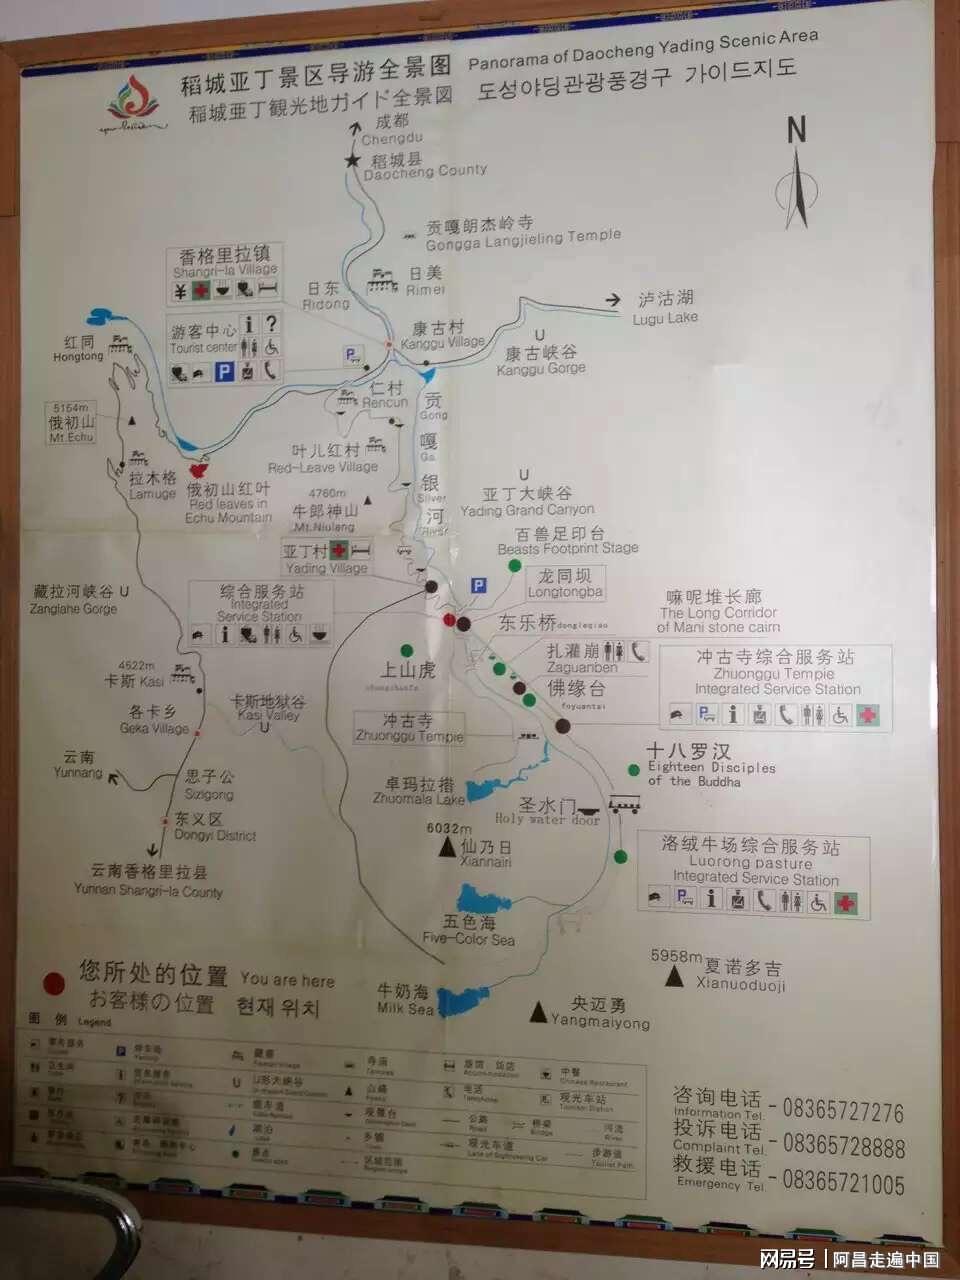 稻城亚丁景区导游全景图 Panorama of Daocheng Yading Scenic Area
稻城亜丁観光地ガイド全景図 도성야딩관광풍경구 가이드지도
成都
Chengdu
N
稻城县
Daocheng County
贡嘎朗杰岭寺
Gongga Langjieling Temple
香格里拉镇
Shangri-la Village
日美
Rimei
日东
Ridong
泸沽湖
Lugu Lake
游客中心
Tourist center
康古村
Kanggu Village
康古峡谷
Kanggu Gorge
红同
Hongtong
仁村
Rencun
贡
Gong
嘎
Ga
银
Silver
河
River
5164m
俄初山
Mt.Echu
叶儿红村
Red-Leave Village
拉木格
Lamuge
俄初山红叶
Red leaves in
Echu Mountain
4760m
牛郎神山
Mt.Niulang
亚丁大峡谷
Yading Grand Canyon
百兽足印台
Beasts Footprint Stage
亚丁村
Yading Village
龙同坝
Longtongba
藏拉河峡谷 U
Zanglahe Gorge
综合服务站
Integrated
Service Station
嘛呢堆长廊
The Long Corridor
of Mani stone cairn
东乐桥 dongleqiao
扎灌崩
Zaguanben
上山虎
4522m
卡斯 Kasi
冲古寺综合服务站
Zhuonggu Tempie
Integrated Service Station
佛缘台
foyuantai
卡斯地狱谷
Kasi Valley
各卡乡
Geka Village
冲古寺
Zhuonggu Tempie
云南
Yunnang
思子公
Sizigong
十八罗汉
Eighteen Disciples
of the Buddha
卓玛拉措
Zhuomala Lake
圣水门
Holy water door
东义区
Dongyi District
6032m
仙乃日
Xiannairi
洛绒牛场综合服务站
Luorong pasture
Integrated Service Station
云南香格里拉县
Yunnan Shangri-la County
五色海
Five-Color Sea
5958m
夏诺多吉
Xianuoduoji
您所处的位置 You are here
お客様の位置 현재 위치
牛奶海
Milk Sea
央迈勇
Yangmaiyong
图 例 Legend
停车场
藏寨
寺庙
旅馆 饭店
中餐
Chinese Restaurant
卫生间
U形大峡谷
山峰
电话
观光车站
湖泊
Lake
观景台
公路
Road
桥梁
Bridge
河流
River
景点
乡镇
观光车道
步游道
区域范围
咨询电话 - 08365727276
Information Tel.
投诉电话 - 08365728888
Complaint Tel.
救援电话 - 08365721005
Emergency Tel.
网易号 | 阿昌走遍中国